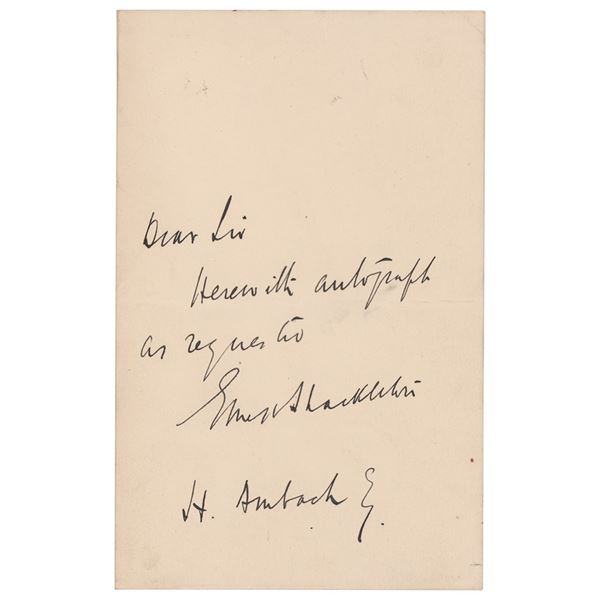 Dear Sir
Herewith autograph
as requested
Ernest Shackleton
H. Ambach Esq.